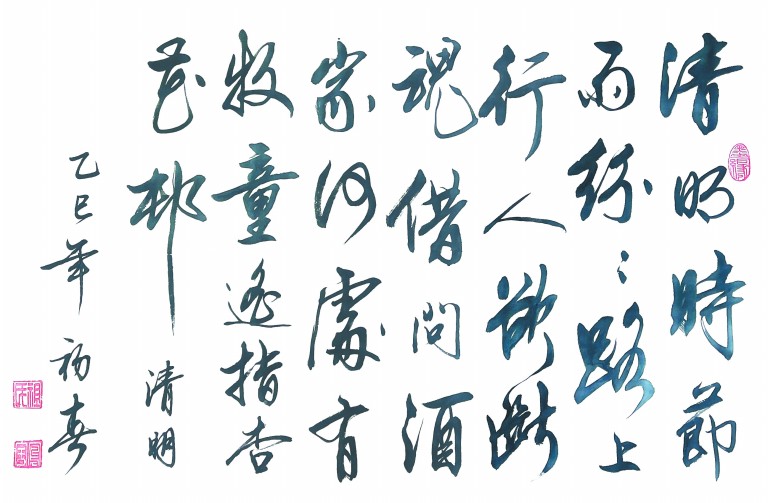 清明時節
雨紛〻路上
行人欲斷
魂借問酒
家何處有
牧童遙指杏
花邨
清明
乙巳年